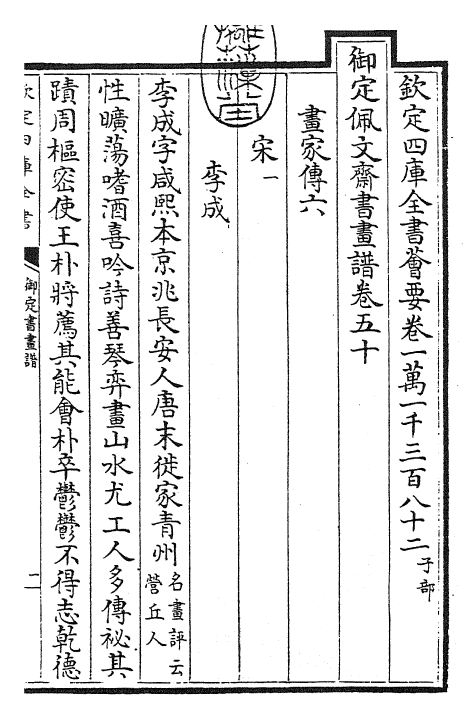 欽定四庫全書薈要卷一萬一千三百八十二 子部
御定佩文齋書畫譜卷五十
畫家傳六
宋一
李成
李成字咸熙本京兆長安人唐末徙家青州 名畫評云營丘人
性曠蕩嗜酒喜吟詩善琴弈畫山水尤工人多傳祕其
蹟周樞密使王朴將薦其能會朴卒鬱鬱不得志乾德
欽定四庫全書
御定書畫譜
一